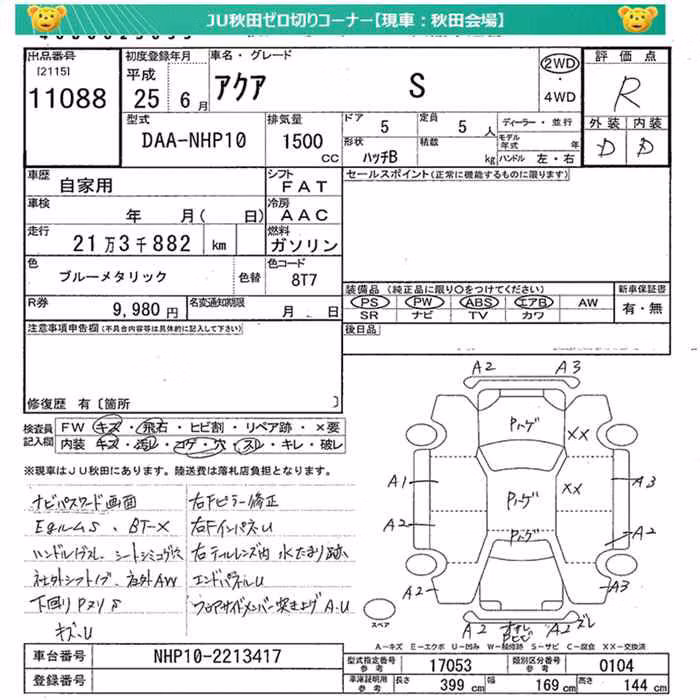 JU秋田ゼロ切りコーナー【現車：秋田会場】
出品番号
[2115]
11088
初度登録年月
平成
25年6月
車名・グレード
アクア S
2WD
・
4WD
評価点
R
外装 内装
D D
型式
DAA-NHP10
排気量
1500
CC
ドア 5
定員 5 人
ディーラー・並行
形状
ハッチB
積載
kg
モデル年式 年
ハンドル 左・右
車歴
自家用
シフト
FAT
車検
年 月( 日)
冷房
AAC
走行
21万3千882 km
燃料
ガソリン
色
ブルーメタリック
色替
色コード
8T7
R券
9,980円
名変通知期限
月 日
セールスポイント(正常に機能するものに限ります)
装備品 (純正品に限り○をつけてください)
PS PW ABS エアB AW
SR ナビ TV カワ
新車保証書
有・無
後日品
注意事項申告欄(不具合内容等は具体的に記入して下さい)
修復歴 有〔箇所 〕
検査員
記入欄
FW キズ・飛石・ヒビ割・リペア跡・×要
内装 キズ・汚レ・コゲ・穴・スレ・キレ・破レ
※現車はJU秋田にあります。陸送費は落札店負担となります。
ナビパスワード画面
BT-X
社外シフトノブ
キズ・U
右Fピラー修正
右FインパネU
右テールレンズ内 水たまり跡
エンドパネルU
フロアサイドメンバー突き上げ A・U
A2 A3
Pハゲ
××
A1
Pハゲ
××
A3
A2
Pハゲ
A2
A2
A3
A2
A2
ズレ
スペア
A=キズ E=エクボ U=凹み W=補修跡 S=サビ C=腐食 ××=交換済
車台番号
NHP10-2213417
型式指定番号
参考
17053
類別区分番号
参考
0104
車庫証明用
参考
長さ 399 cm
幅 169 cm
高さ 144 cm